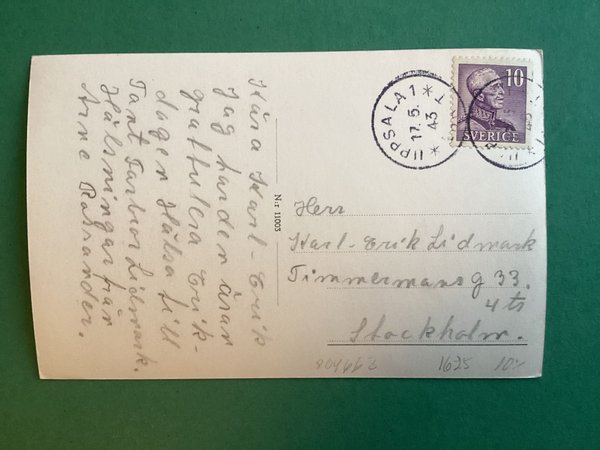 Kära Karl-Erik
Jag har den äran
gratulera Erik-
dagen Hälsa till
Tant Farbror Lidmark.
Hälsningar från
Arne Rosander.
N:r 11005
UPPSALA 1
17.5.
43
10
SVERIGE
Herr
Karl-Erik Lidmark
Timmermansg 33.
4 tr
Stockholm.
1625
10:-